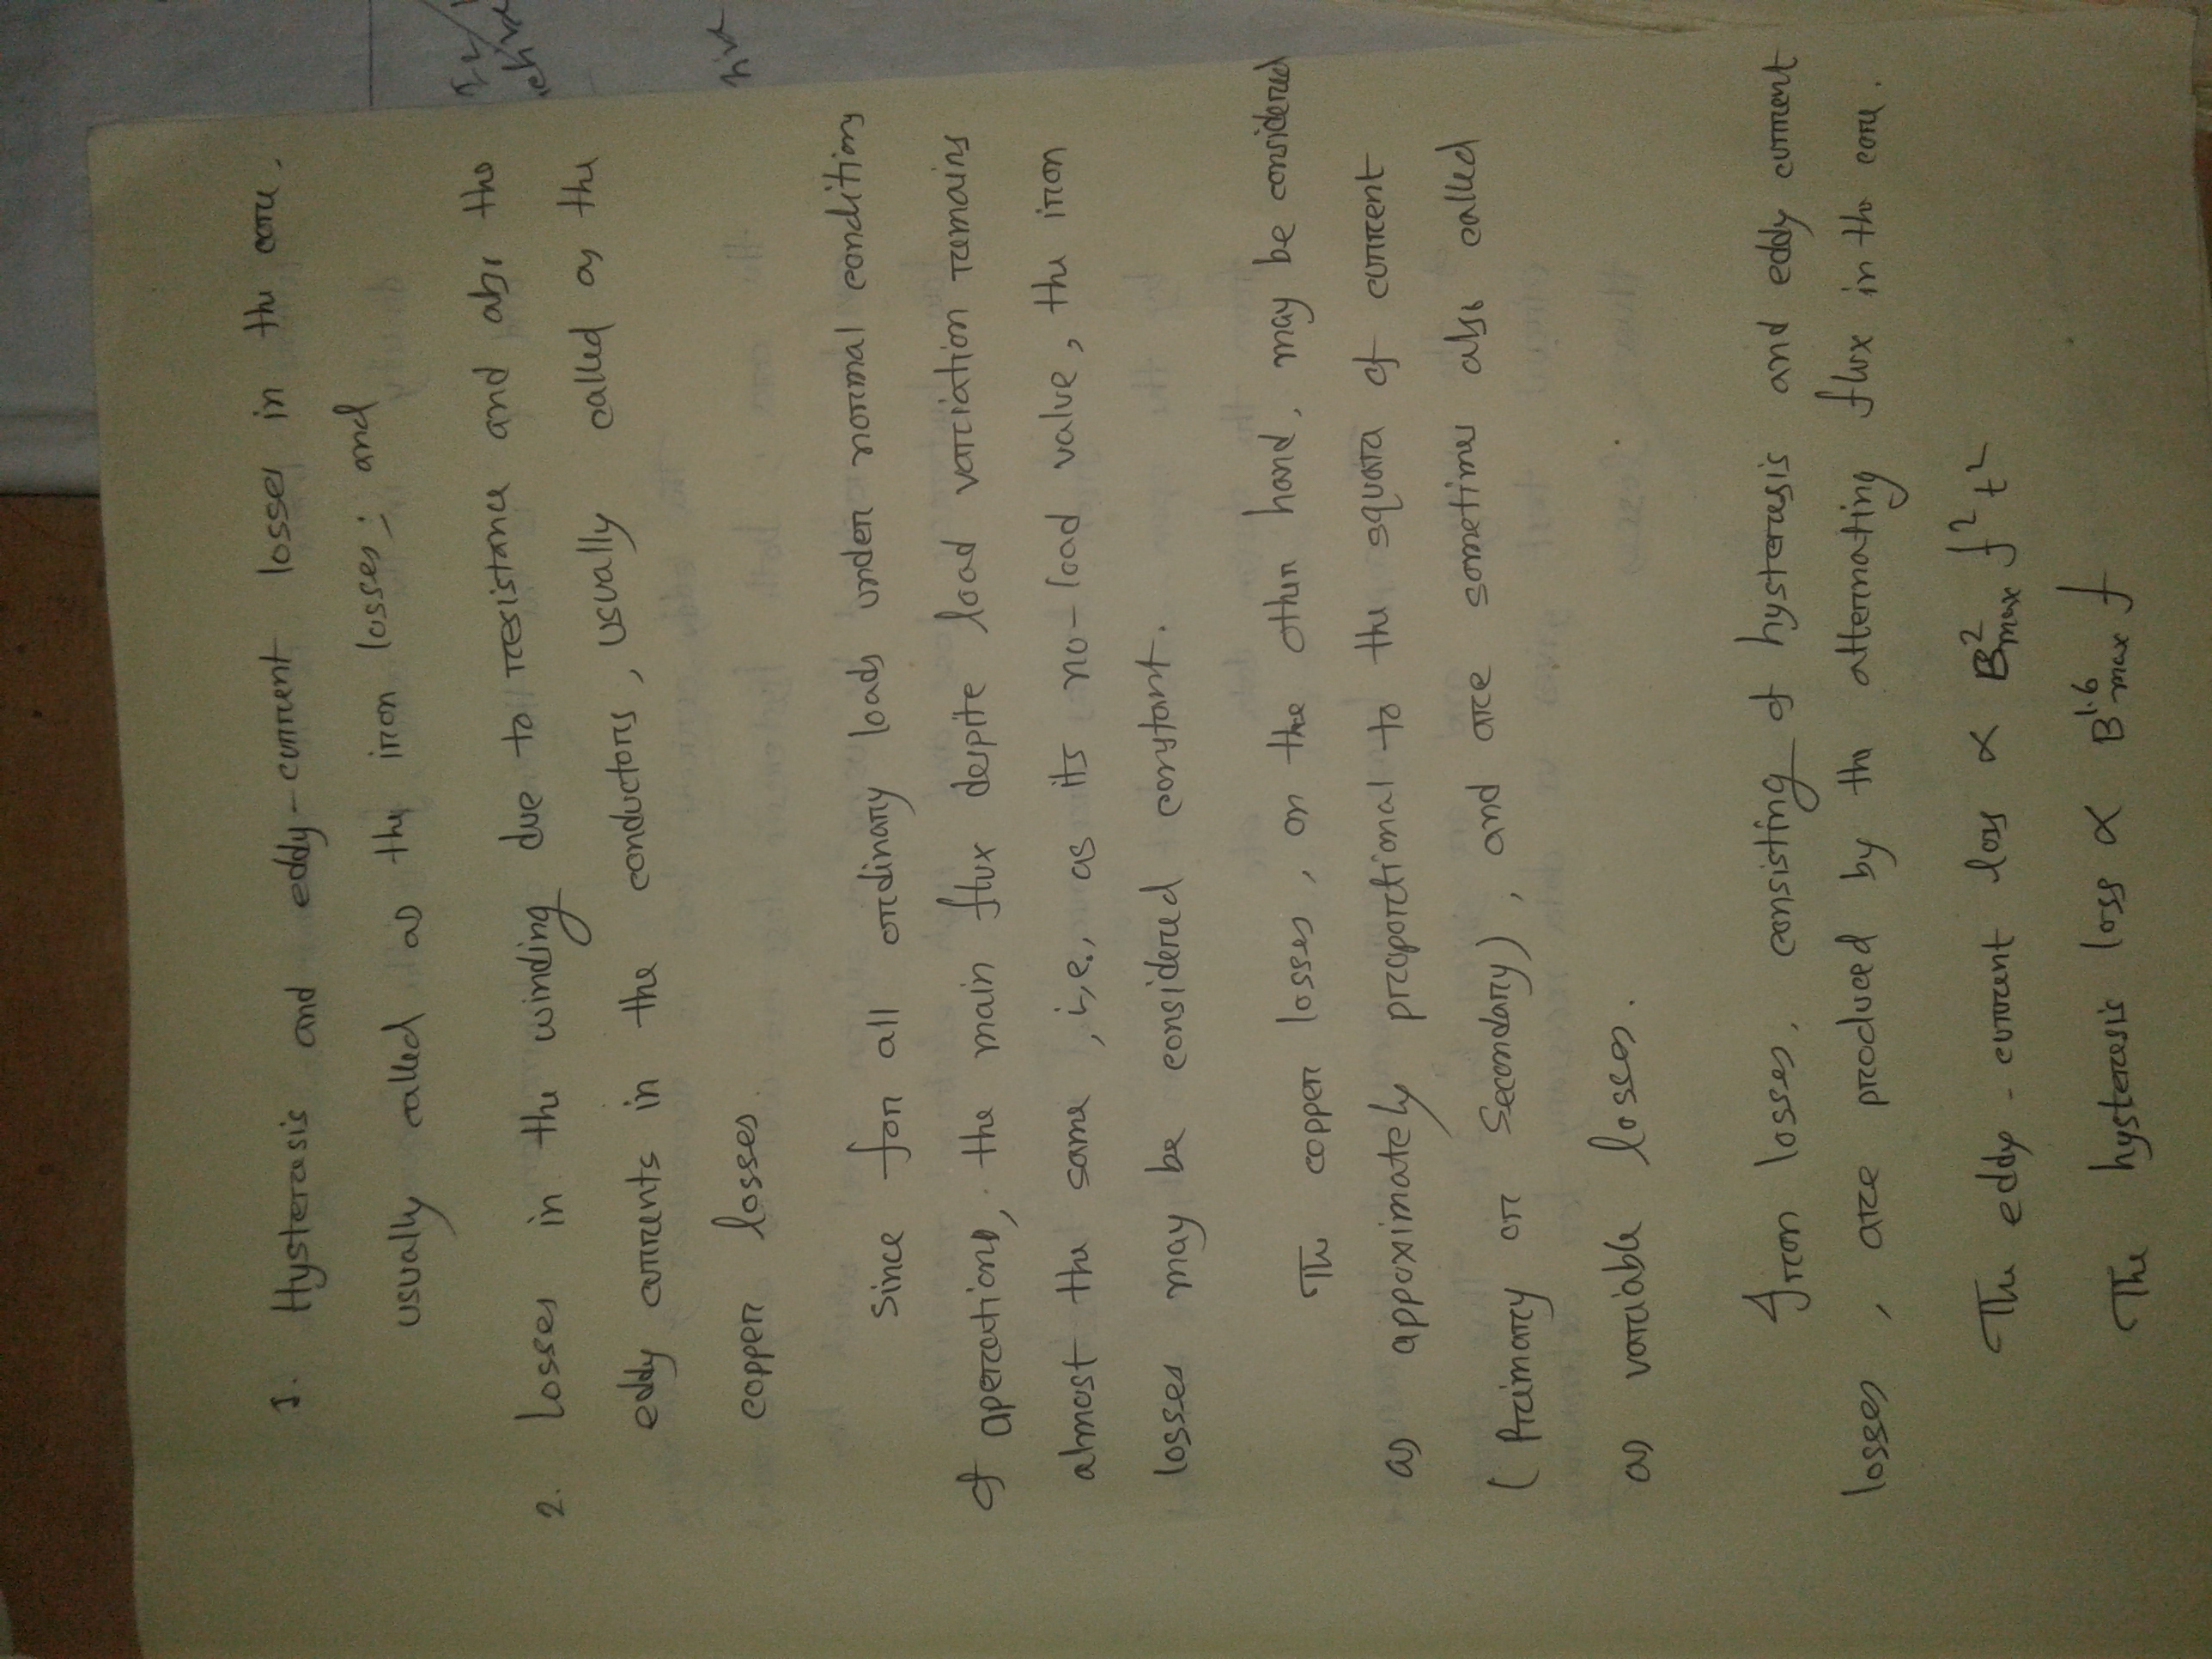 1. Hysteresis and eddy-current losses in the core.
usually called as the iron losses; and
2. Losses in the winding due to resistance and also the
eddy currents in the conductors, usually called as the
copper losses.
Since for all ordinary loads under normal conditions
of aperations, the main flux despite load variation remains
almost the same, i,e., as its no-load value, the iron
losses may be considered constant.
The copper losses, on the other hand, may be considered
as appoximately praportional to the square of current
(Primary or Secondary), and are sometimes also called
as variable losses.
Iron losses, consisting of hysteresis and eddy current
losses, are produced by the alternating flux in the core.
The eddy-current loss ∝ B²max f² t²
The hysteresis loss ∝ B^1.6 max f